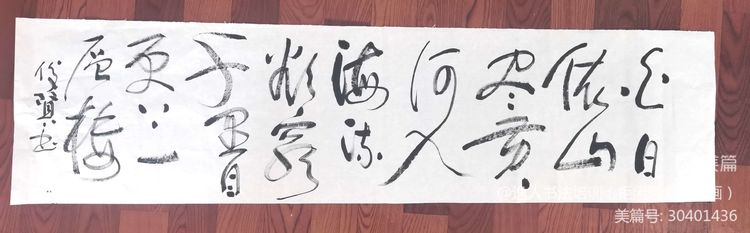 白日
依山
尽黄
河入
海流
欲穷
千里目
更上一
层楼
俊贤书
美篇
美篇号: 30401436